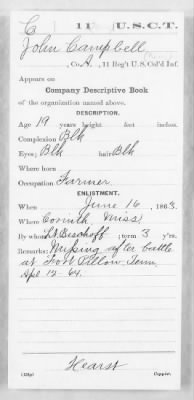 C | 11 | U.S.C.T.
John Campbell
, Co. A, 11 Reg't U.S. Col'd Inf.
Appears on
Company Descriptive Book
of the organization named above.
DESCRIPTION.
Age 19 years; height feet inches.
Complexion Blk
Eyes; Blk hair Blk
Where born
Occupation Farmer
ENLISTMENT.
When June 16, 1863.
Where Corinth, Miss
By whom Lt. Bischoff; term 3 y'rs.
Remarks: Missing after battle
at Fort Pillow Tenn
Apl 12-64.
Hearst
Copyist.